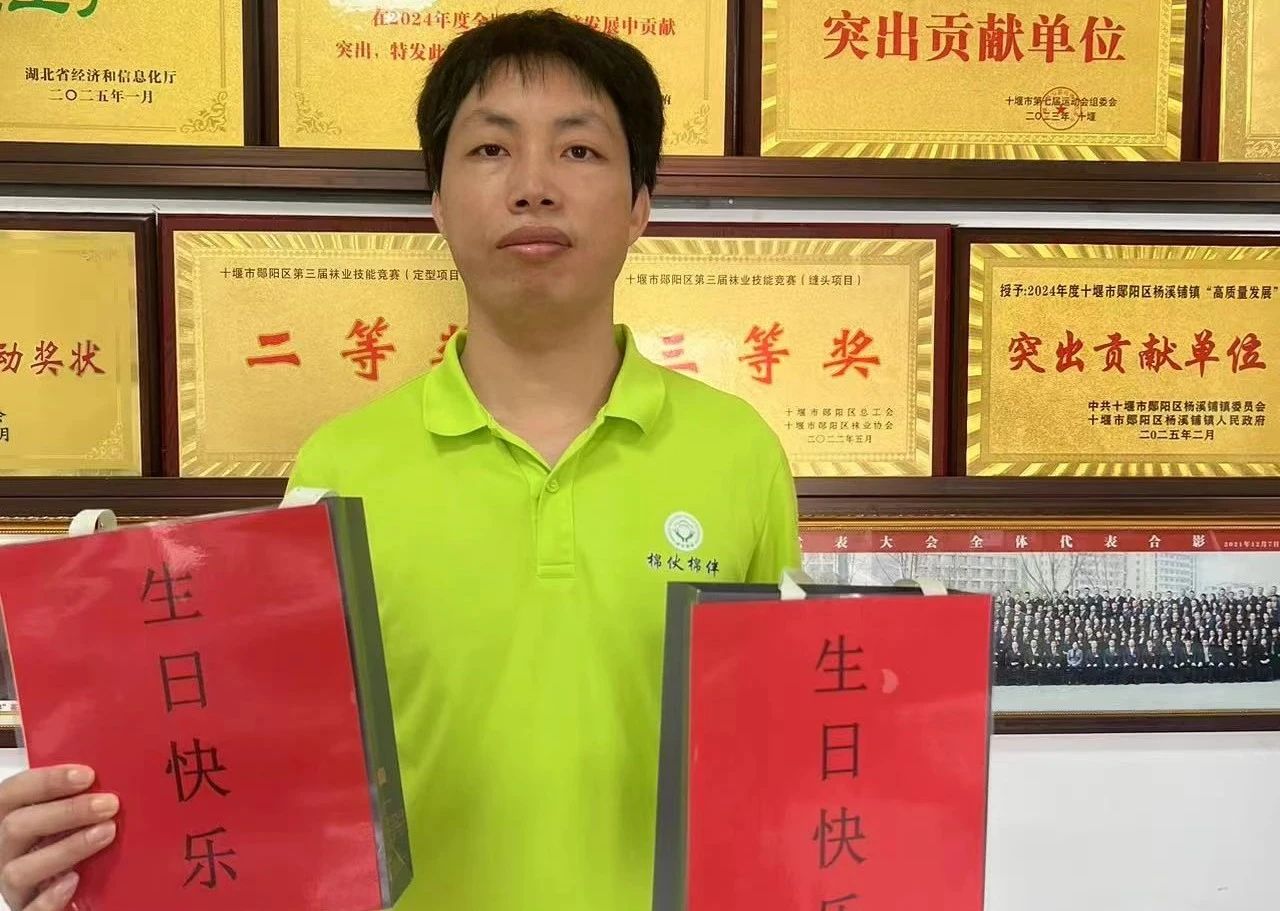 湖北省经济和信息化厅
二〇二五年一月
在2024年度全
发展中贡献
突出，特发此
突出贡献单位
十堰市第七届运动会组委会
二〇二三年 十堰
动奖状
十堰市郧阳区第三届袜业技能竞赛（定型项目
二等
十堰市郧阳区第三届袜业技能竞赛（缝头项目）
三等奖
十堰市郧阳区总工会
十堰市郧阳区袜业协会
二〇二二年五月
授予:2024年度十堰市郧阳区杨溪铺镇“高质量发展”
突出贡献单位
中共十堰市郧阳区杨溪铺镇委员会
十堰市郧阳区杨溪铺镇人民政府
二〇二五年二月
表大会全体代表合影
2021年12月7日
棉伙棉伴
生日快乐
生日快乐